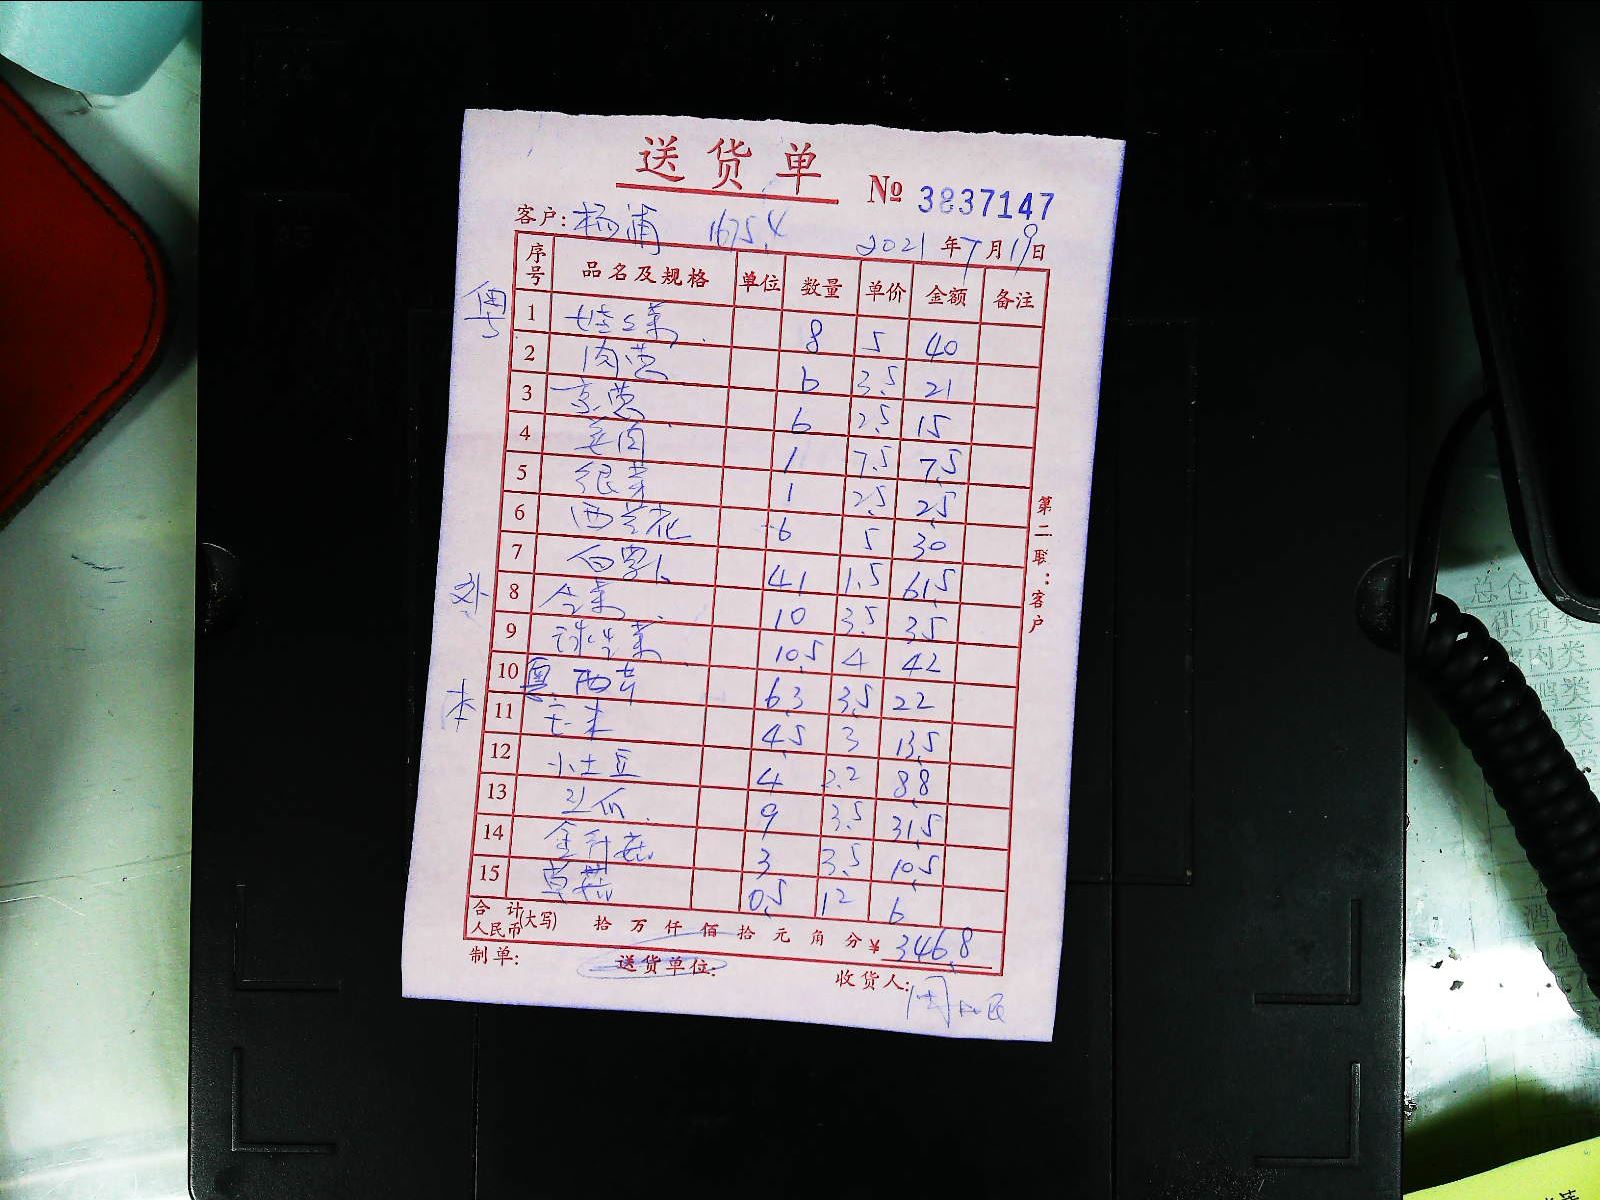 送货单
№ 3837147
客户: 杨浦 1675.4 2021年7月19日
序号 品名及规格 单位 数量 单价 金额 备注
粤
1 娃娃菜 8 5 40
2 肉葱 6 3.5 21
3 京葱 6 2.5 15
4 姜肉 1 7.5 7.5
5 银芽 1 2.5 2.5
6 西兰花 6 5 30
7 41 1.5 61.5
外
8 10 3.5 35
9 球生菜 10.5 4 42
本
10 粤 西芹 6.3 3.5 22
11 玉米 4.5 3 13.5
12 小土豆 4 2.2 8.8
13 9 3.5 31.5
14 金针菇 3 3.5 10.5
15 草菇 0.5 12 6
合计人民币(大写) 拾 万 仟 佰 拾 元 角 分 ¥ 346.8
制单: 送货单位: 收货人:
第二联:客户
总仓
供货类
肉类
鸭类
类
酒